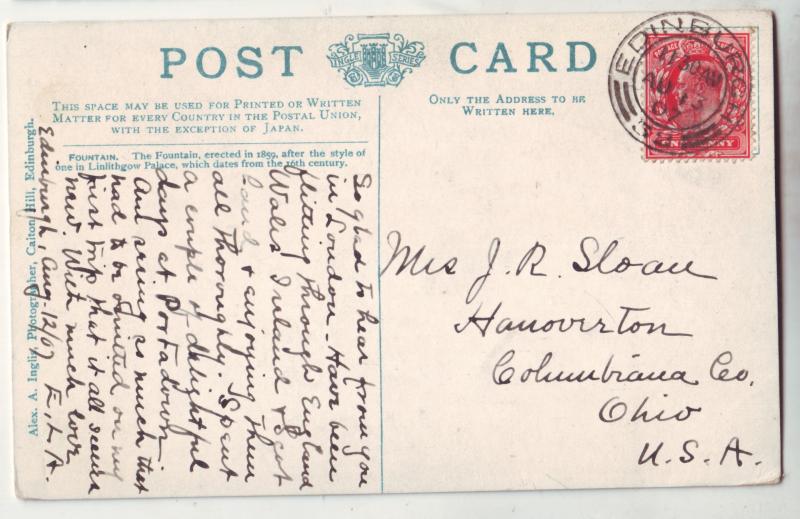 POST CARD
INGLIS SERIES
THIS SPACE MAY BE USED FOR PRINTED OR WRITTEN
MATTER FOR EVERY COUNTRY IN THE POSTAL UNION,
WITH THE EXCEPTION OF JAPAN.
ONLY THE ADDRESS TO BE
WRITTEN HERE.
FOUNTAIN. The Fountain, erected in 1859, after the style of
one in Linlithgow Palace, which dates from the 16th century.
Alex. A. Inglis, Photographer, Calton Hill, Edinburgh.
So glad to hear from you
in London. Have been
flitting through England
Wales Ireland & Scot
land & enjoying them
all thoroughly. Spent
a couple of delightful
days at Portadown
And seeing so much that
had to be omitted on my
first trip that it all seems
new. With much love
Edinburgh, Aug. 12/07 E. L. A.
Mrs J. R. Sloan
Hanoverton
Columbiana Co.
Ohio
U. S. A.
EDINBURGH
AU 13
07
POSTAGE
ONE PENNY